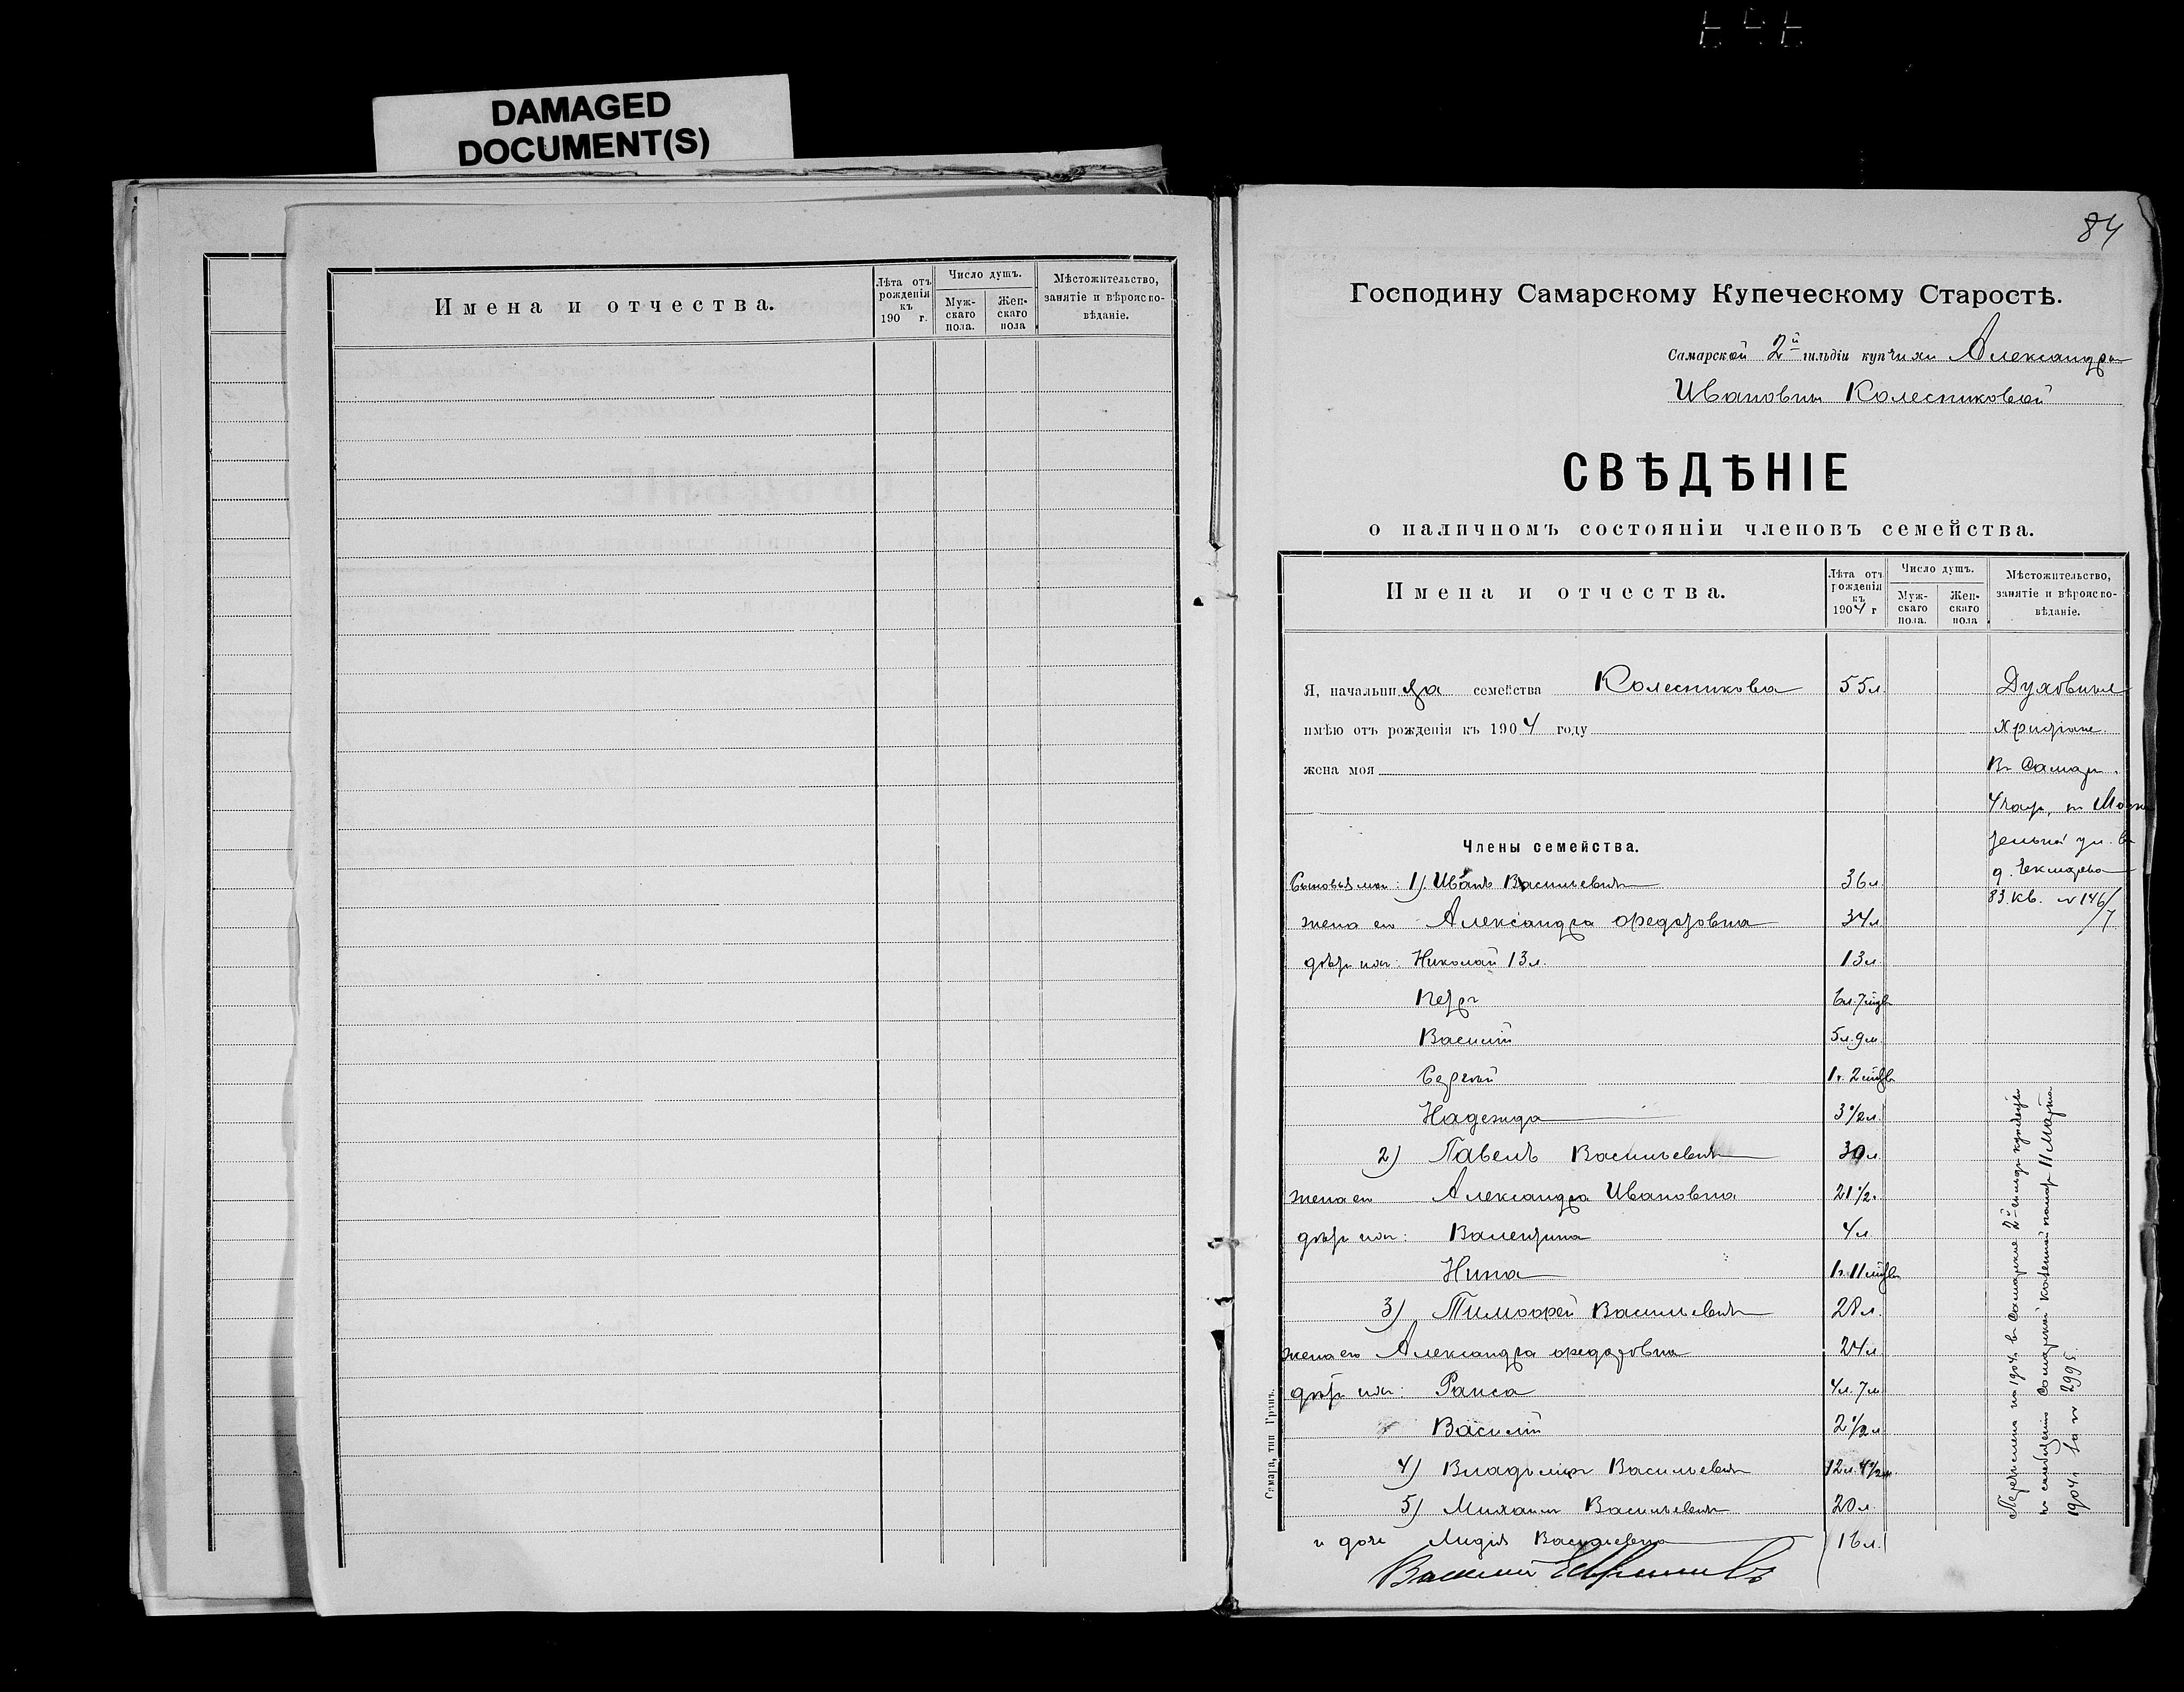 DAMAGED
DOCUMENT(S)
Имена и отчества.
Лѣта отъ рожденія къ 190 г.
Число душъ.
Муж-скаго пола.
Жен-скаго пола
Мѣстожительство, занятіе и вѣроиспо-вѣданіе.
84
Господину Самарскому Купеческому Старостѣ.
Самарской 2й гильдіи купчихи Александры
Ивановны Колесниковой
СВѢДѢНІЕ
о наличномъ состояніи членовъ семейства.
Имена и отчества.
Лѣта отъ рожденія къ 1904 г
Число душъ.
Муж-скаго пола.
Жен-скаго пола
Мѣстожительство, занятіе и вѣроиспо-вѣданіе.
Я, начальница семейства Колесникова 55 л. Духовные
имѣю отъ рожденія къ 1904 году Христіане.
жена моя Въ Самарѣ.
4 част., по Моска
Члены семейства. тельной ул. въ
д. Чекмарева
Сыновья мои: 1) Иванъ Васильевичъ 36 л.
83 кв. № 146/7
жена его Александра Федоровна 34 л
дѣти ихъ: Николай 13 л. 13 л.
Петръ 6 л. 7 мцвъ
Василій 5 л. 9 м
Сергѣй 1 г. 2 мцвъ
Надежда 3 1/2 л.
2) Павелъ Васильевичъ 30 л
жена его Александра Ивановна 21 1/2
дѣти ихъ: Валентина 4 л
Нина 1 г. 11 мцвъ
3) Тимофей Васильевичъ 28 л.
жена его Александра Федоровна 24 л
дѣти ихъ: Раиса 4 л. 7 м
Василій 2 1/2 л
4) Владиміръ Васильевичъ
5) Михаилъ Васильевичъ 20 л.
и дочь Лидія Васильевна 16 л.
Василій
Перечислены на 1904 г. въ Самарскіе 2й гильд. купцы
по Самарской Казенной палаты 11 Марта
1904 г. за № 2995.
Самара, тип Гранъ.